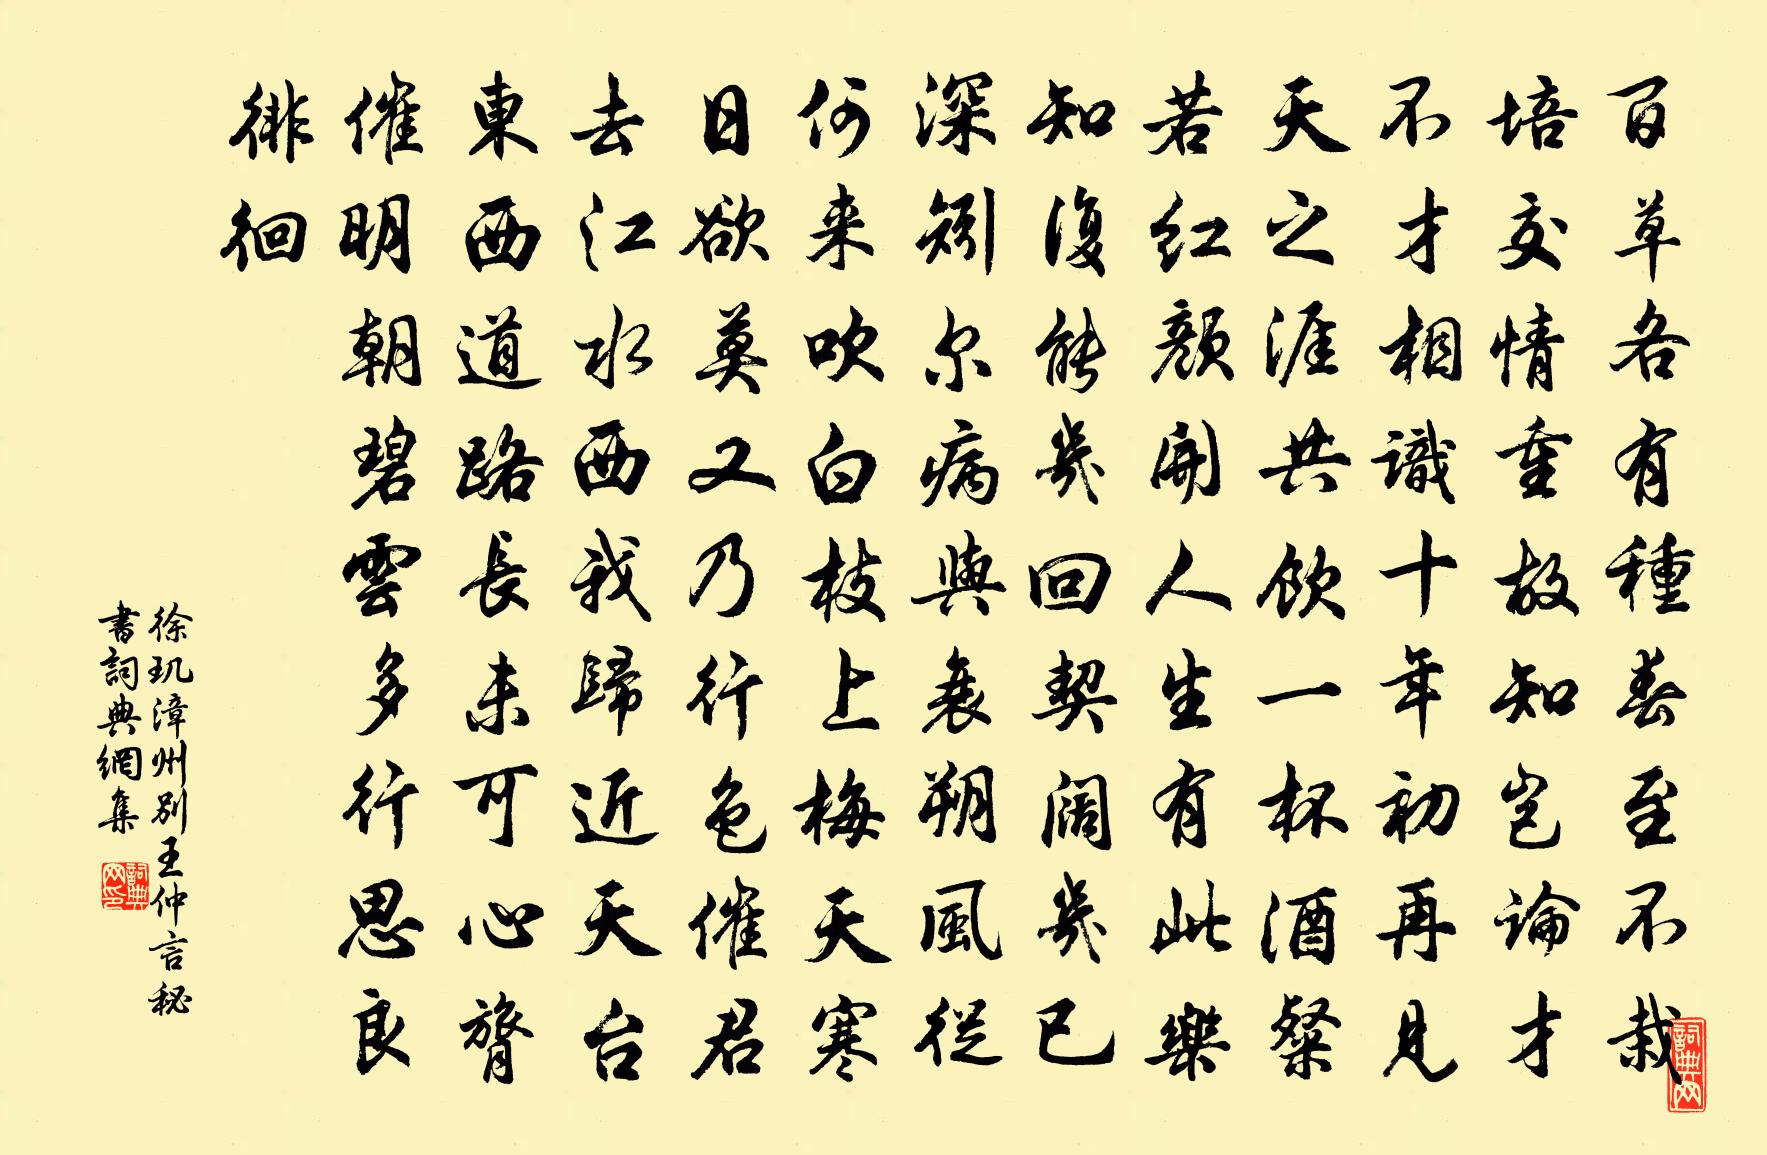 百草各有種春至不栽
培交情重故知豈論才
不才相識十年初再見
天之涯共飲一杯酒粲
若紅顏開人生有此樂
知復能幾回契闊幾已
深矧尔病與衰朔風從
何来吹白枝上梅天寒
日欲莫又乃行色催君
去江水西我歸近天台
東西道路長未可心膂
催明朝碧雲多行思良
徘徊
徐玑漳州別王仲言秘
書詞典網集
詞典网印
詞典网